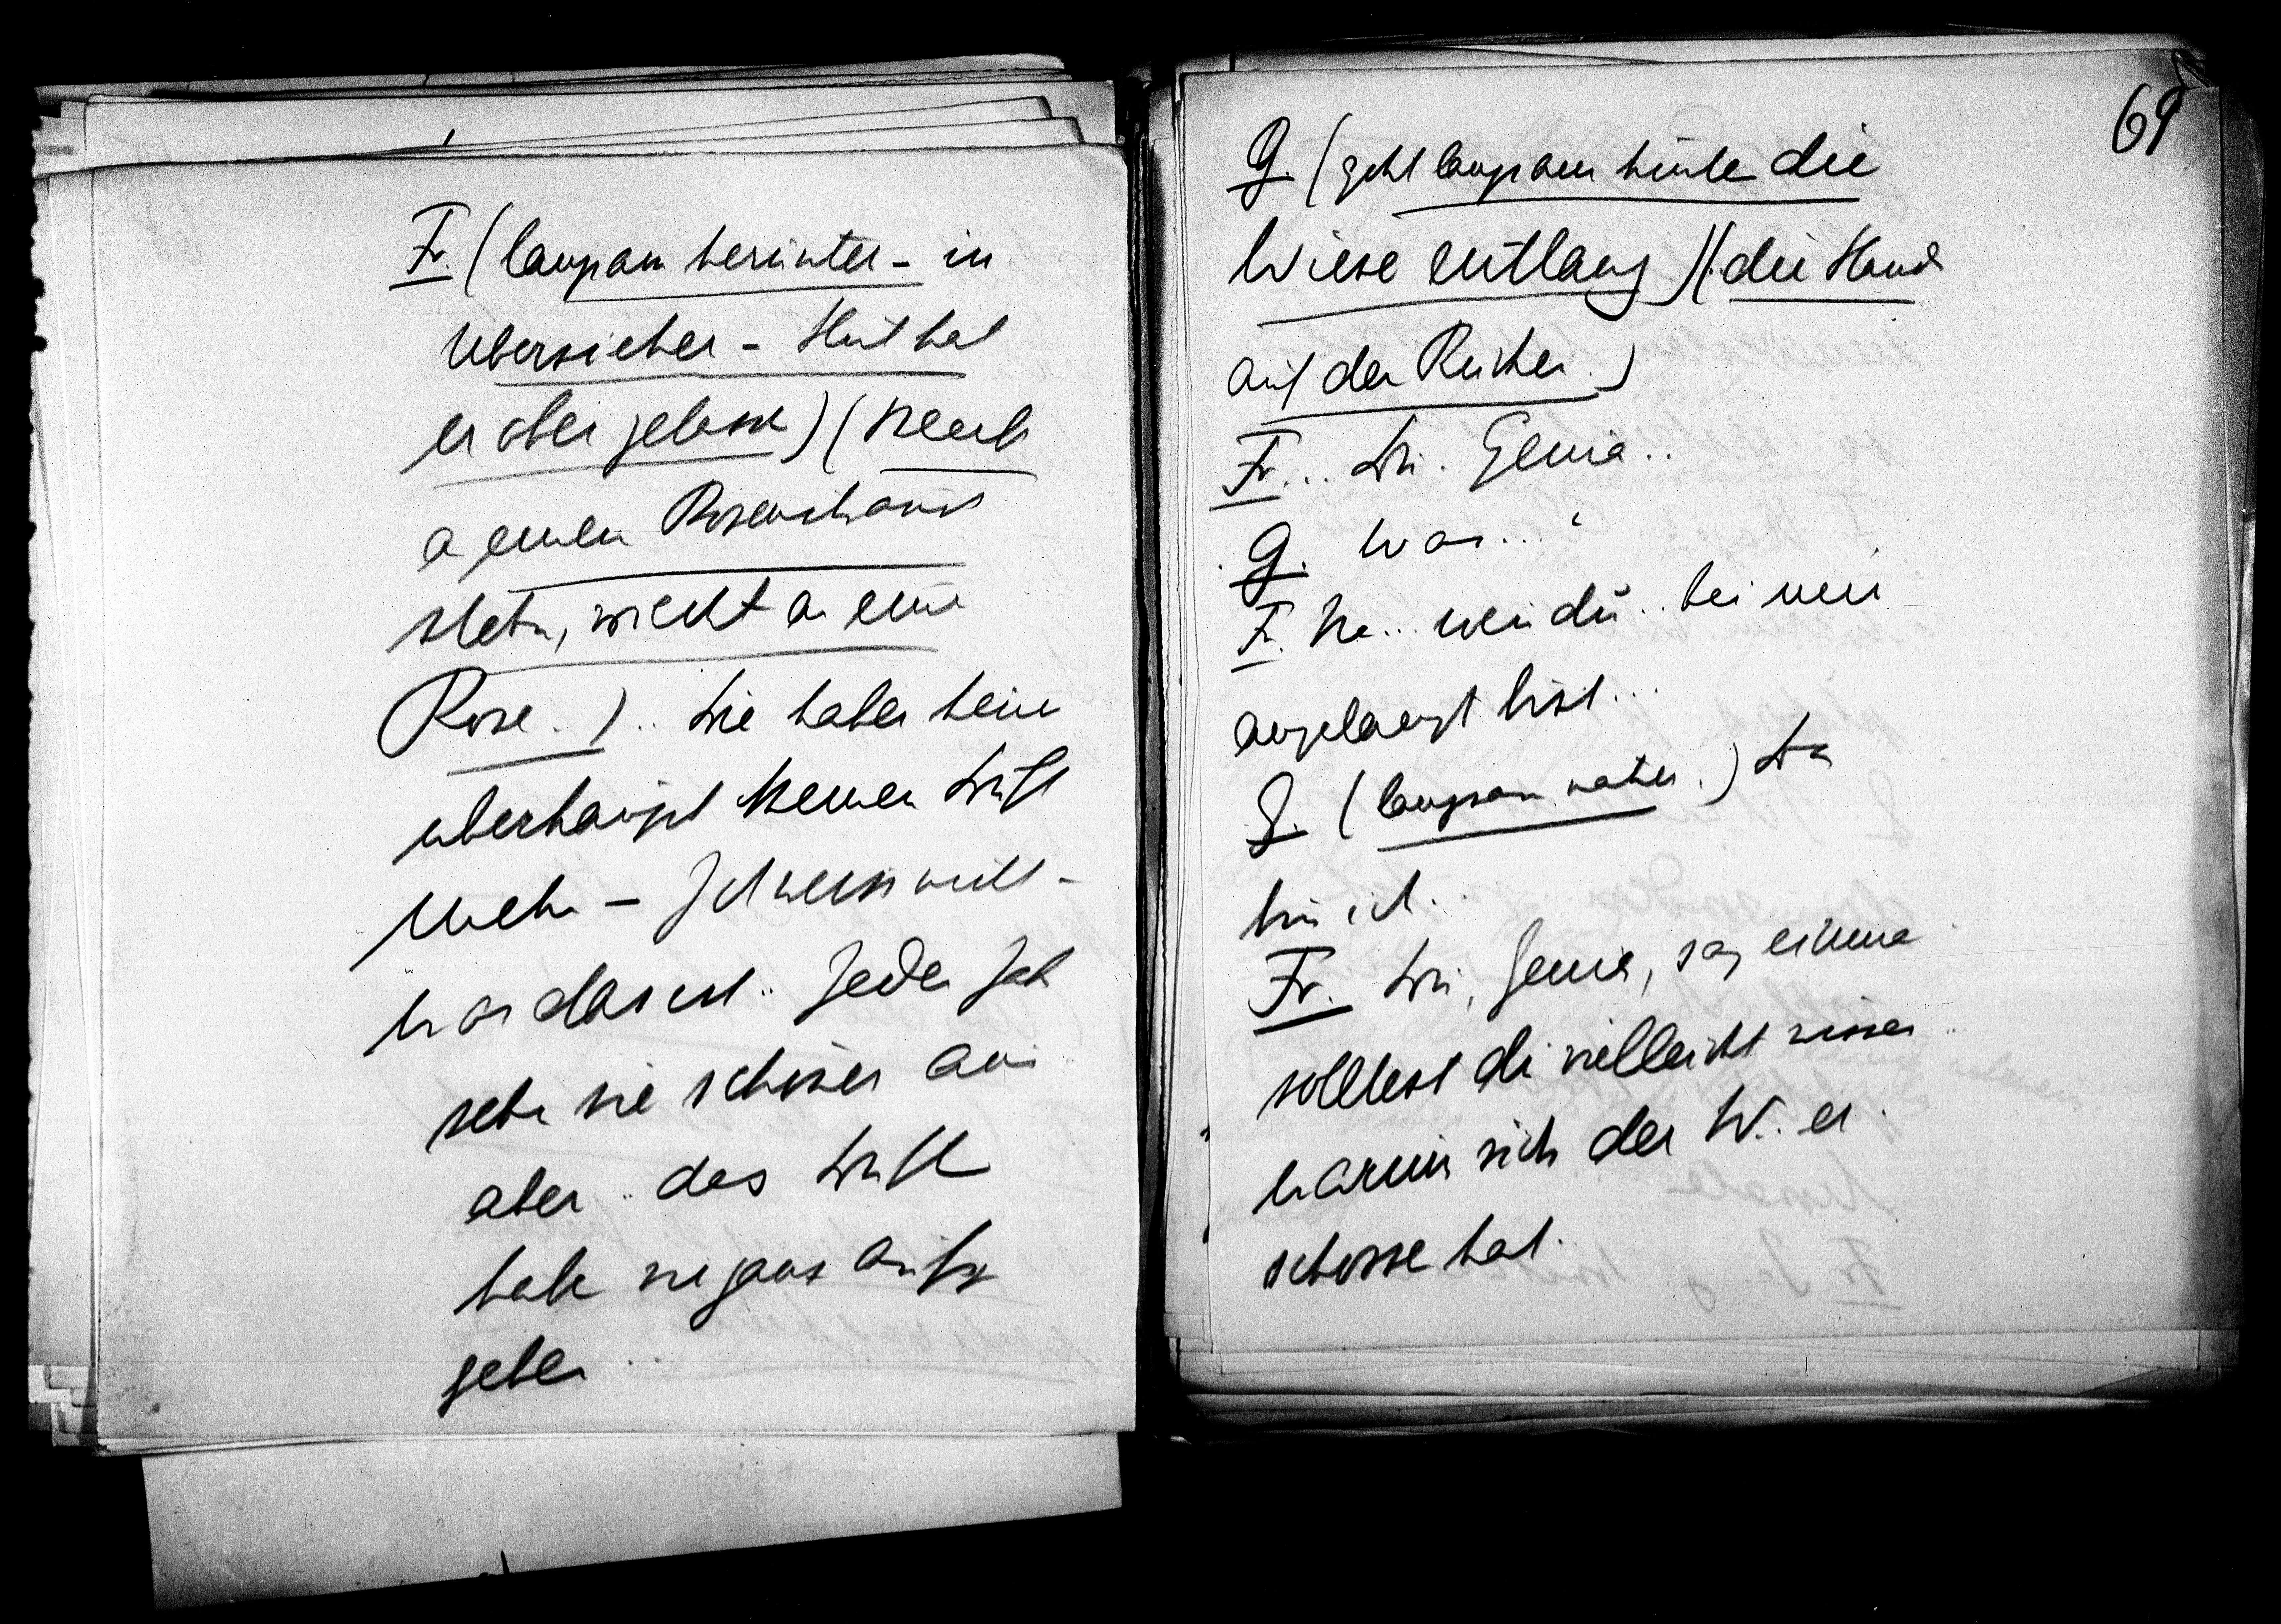 Fr. (langsam herunter - in
Überzieher - Hut hat
er oben gelassen) (bleibt
an einem Rosenstrauch
stehn, riecht an einer
Rose.) .. Die haben heuer
überhaupt keinen Duft
mehr – Ich weiss nicht -
was das ist .. Jedes Jahr
sehn sie schöner aus
aber .. das Duften
haben sie ganz aufge
geben ..
69
G. (geht langsam hinten die
Wiese entlang) (die Hand
auf dem Rücken.)
Fr... Du. Genia..
G. Was...?
Fr. Na... wenn du.. bei mir
angelangt bist...
G. (langsam näher.) Da
bin ich..
Fr. Du, Genia, sag einmal
solltest du vielleicht wissen
warum sich der W. er
schossen hat.